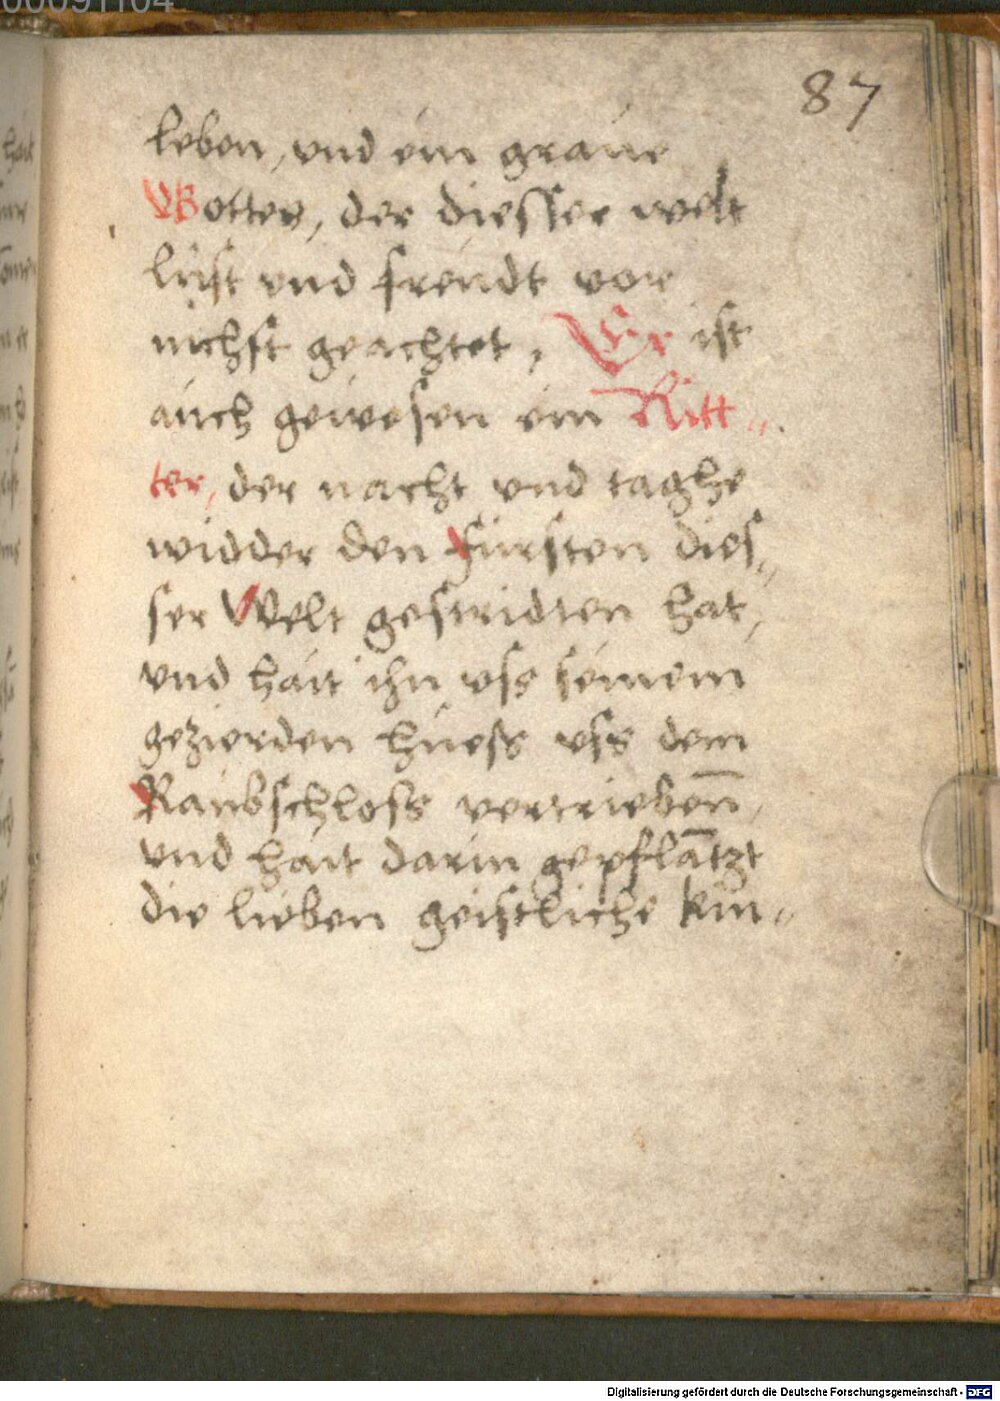 00091104
87
leben, und ein graue
Gottes, der diesser welt
lust und freudt vor
nichst geachtet, Er ist
auch gewesen ein Ritt„
ter, der nacht und taghe
widder den Fursten dies„
ser Welt gestridten hat,
und hait ihn uss seinem
gezierden huess uss dem
Raubschloss vertriebenn̄,
und hait darin gepflātzt
die lieben geistliche kin„
Digitalisierung gefördert durch die Deutsche Forschungsgemeinschaft - DFG